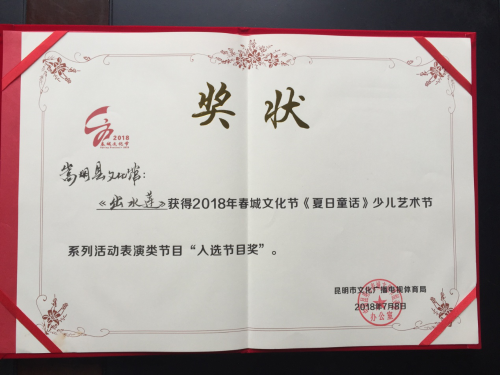 奖状
2018
春城文化节
嵩明县文化馆:
《出水莲》获得2018年春城文化节《夏日童话》少儿艺术节
系列活动表演类节目“人选节目奖”。
昆明市文化广播电视体育局
2018年7月8日
办公室